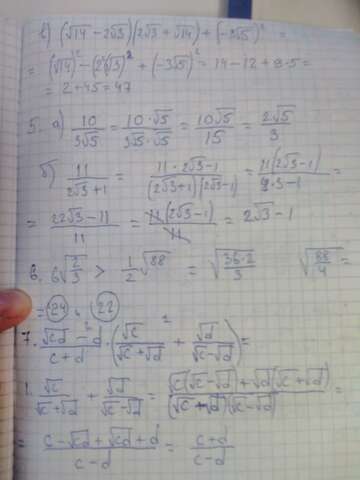 в) (√14 - 2√3)(2√3 + √14) + (-3√5)² =
= (√14)² - (2√3)² + (-3√5)² = 14 - 12 + 9·5 =
= 2 + 45 = 47
5. а) 10/3√5 = 10·√5/3√5·√5 = 10√5/15 = 2√5/3
б) 11/2√3+1 = 11·2√3-1/(2√3+1)(2√3-1) = 11(2√3-1)/9·3-1 =
= 22√3-11/11 = 11(2√3-1)/11 = 2√3-1
6. 6√2/3 > 1/2√88 = √36·2/3 √88/4 =
= 24, 22
7. √cd - d/c+d · (√c/√c+√d + √d/√c-√d) =
1. √c/√c+√d + √d/√c-√d = √c(√c-√d)+√d(√c+√d)/(√c+√d)(√c-√d) =
= c-√cd+√cd+d/c-d = c+d/c-d